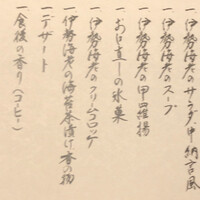 一伊勢海老のサラダ、申納言風
一伊勢海老のスープ
一伊勢海老の甲羅揚
一お口直しの氷菓
一伊勢海老のクリームコロッケ
一伊勢海老の海苔茶漬け 香の物
一デザート
一食後の香り(コーヒー)